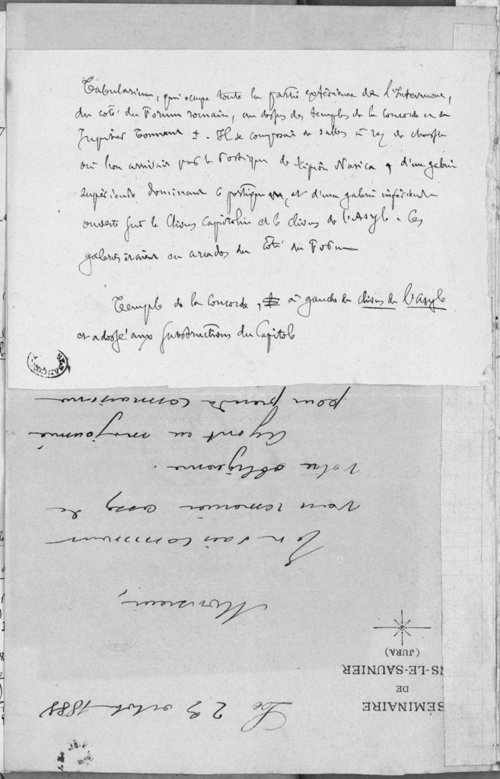 Tabularium, qui occupe toute la partie extérieure de l'Intermont,
du coté du Forum romain, au dessus des temples de la concorde et de
Jupiter Tonnant +. Il se composait de salles à rez de chaussée
où l'on arrivait par le Portique de Scipion Nasica, d'un galerie
supérieure dominant le portique et d'un galerie inférieure
ouverte sur le Clivus Capitolin et le clivus de l'Asyle. Ces
galeries étaient en arcades du côté du Forum
Temple de la concorde, à gauche du clivus de l'Asyle
et adossé aux substructions du Capitole
SÉMINAIRE
DE
NS-LE-SAUNIER
(JURA)
Le 23 octobre 1888
Monsieur,
J'en suis
vous remercier de
votre obligeance.
Ayant eu
pour prendre connaissance